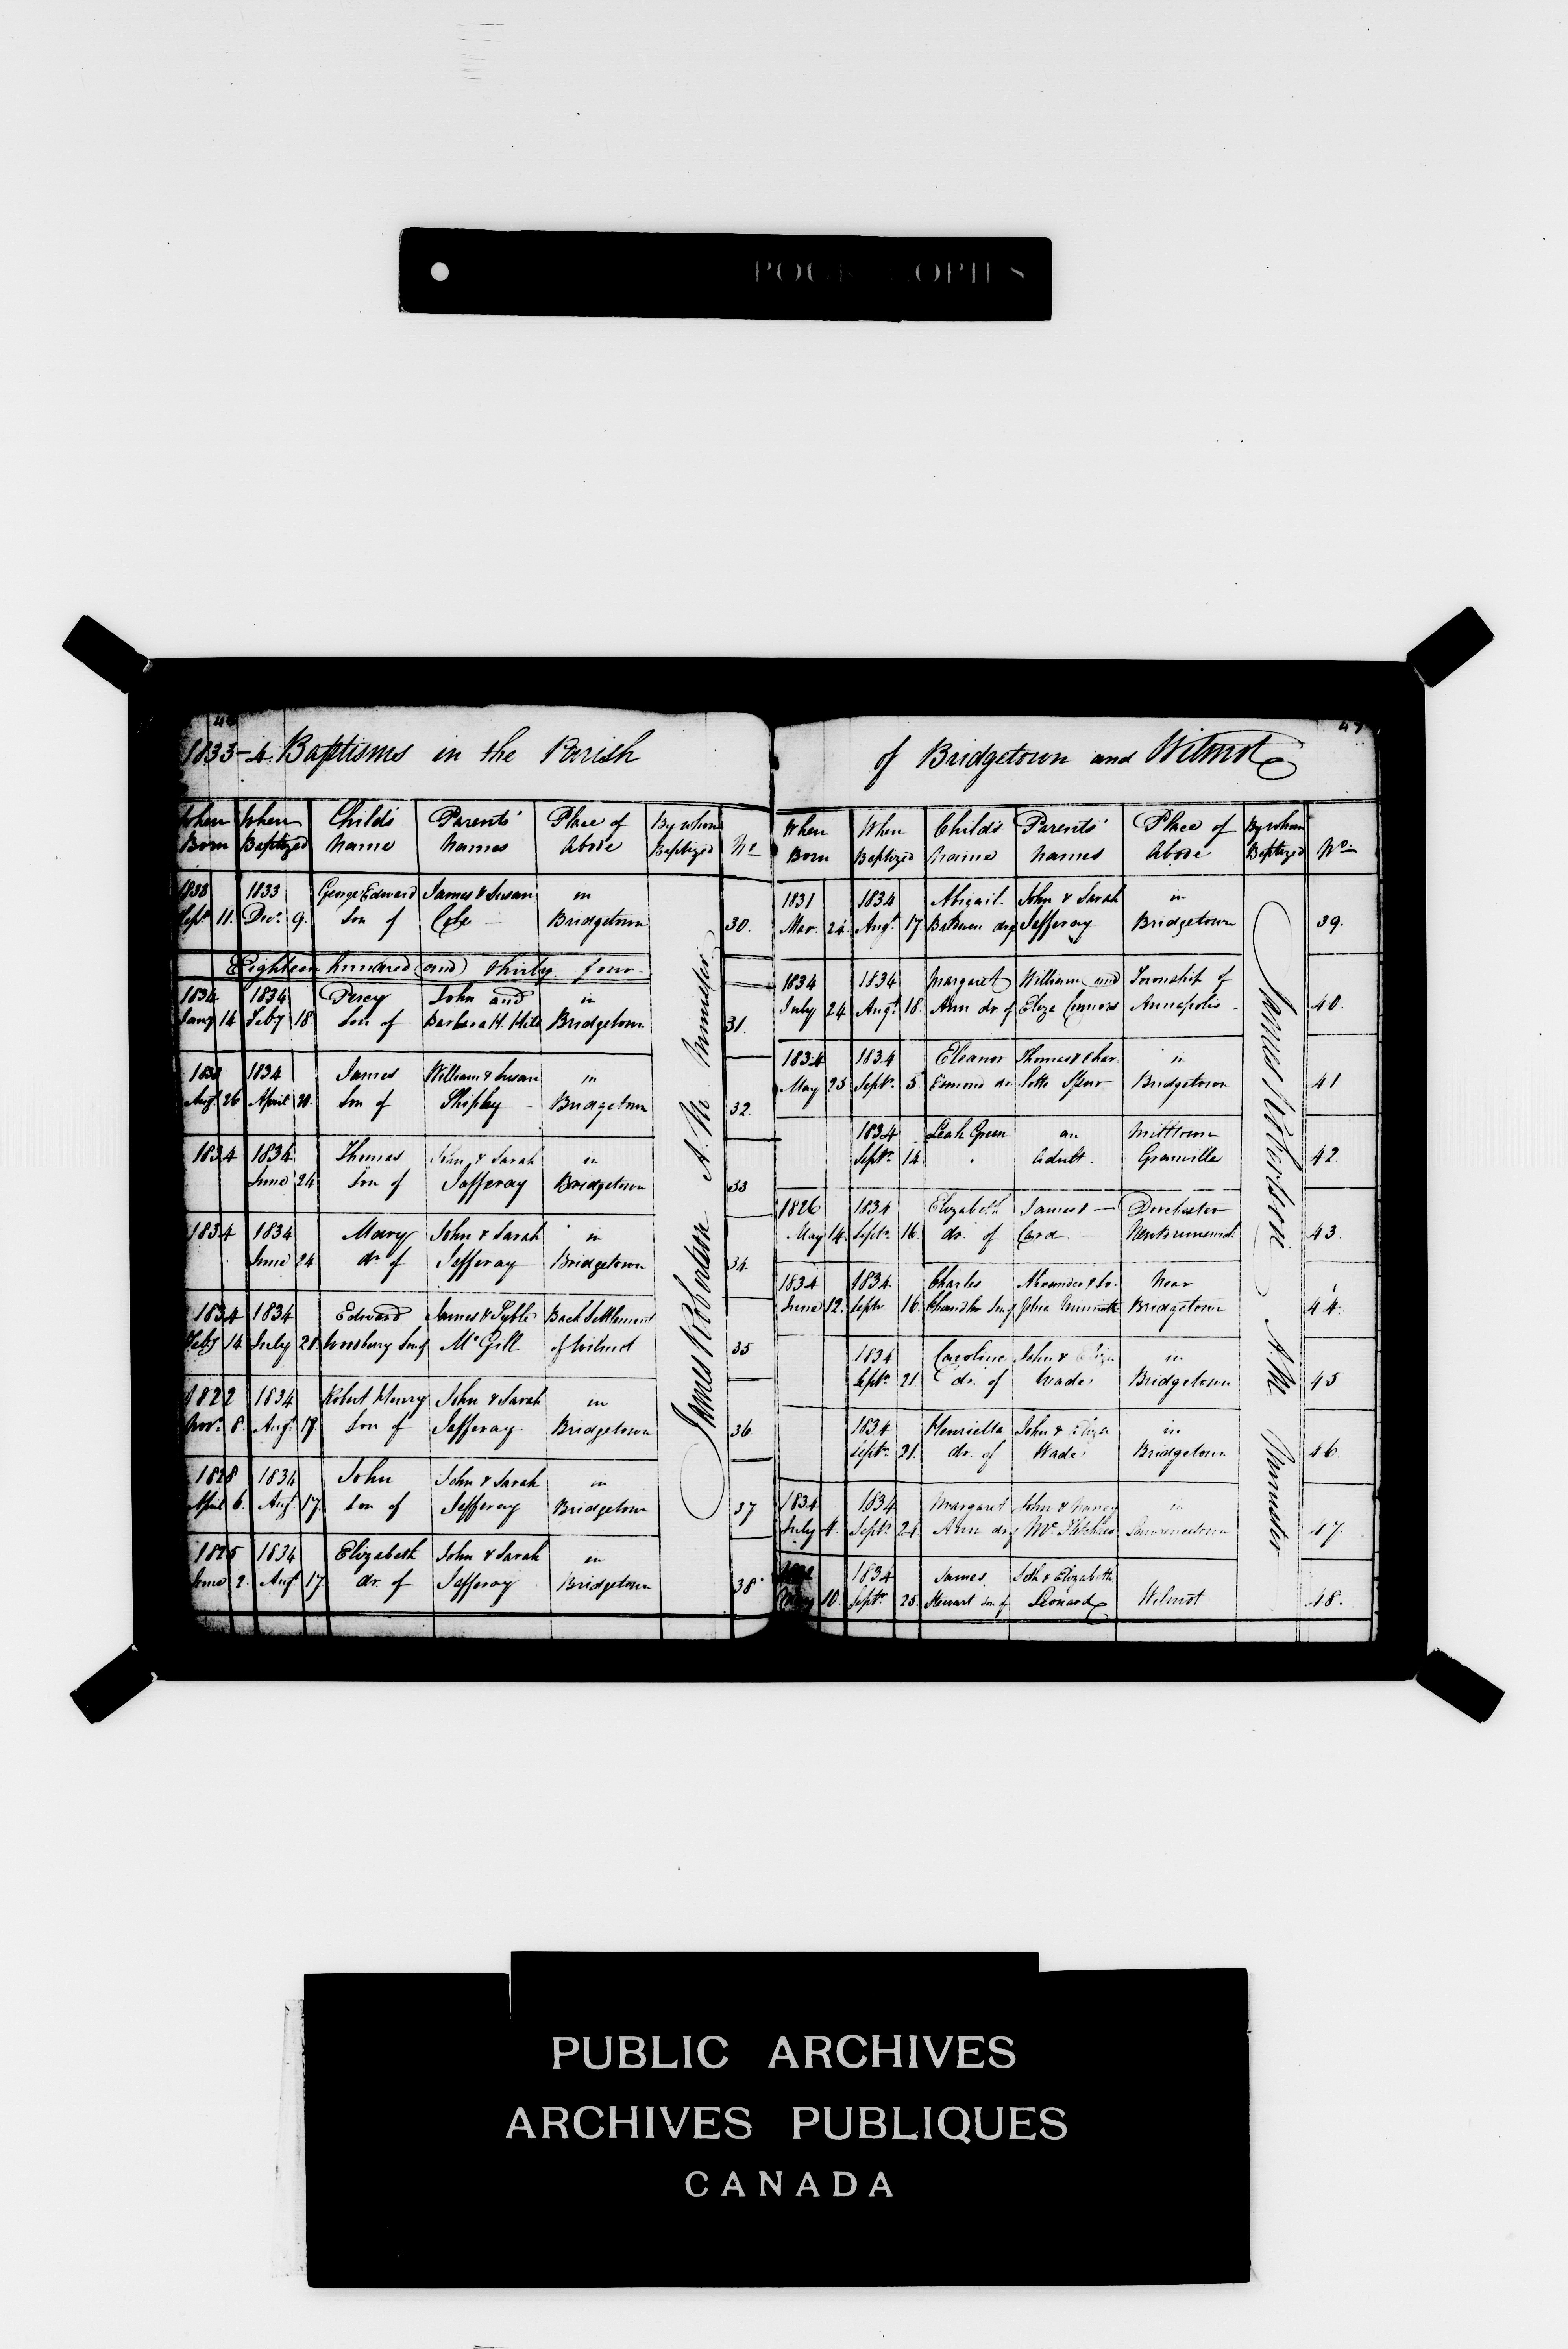 46
1833-4. Baptisms in the Parish
When Born When Baptized Child's Name Parents' Names Place of Abode By whom Baptized No
1833 1833 George Edward James & Susan in
Sept. 11. Decr. 9. Son of Bridgetown 30.
Eighteen hundred and thirty four
1834 1834 Percy John and in
Jany 14 Feby 18 Son of Barbara H. Bridgetown 31.
1834 James William & Susan in
Aug. 26 April 20. Son of Shipley Bridgetown 32.
1834 1834 Thomas John & Sarah in
June 24 Son of Jafferay Bridgetown 33
1834 1834 Mary John & Sarah in
June 24 dr. of Jefferay Bridgetown 34.
1834 1834 Edward James & Syble Back Settlement
Feby 14. July 28. Woodbury Son of McGill of Wilmot 35
1822 1834 Robert Henry John & Sarah in
Novr. 8. Augt. 17. Son of Jafferay Bridgetown 36
1828 1834 John John & Sarah in
April 6. Augt. 17. Son of Jefferay Bridgetown 37
1825 1834 Elizabeth John & Sarah in
June 2. Augt. 17. dr. of Jafferay Bridgetown 38
James Robertson A. M. Minister
47
of Bridgetown and Wilmot
When Born When Baptized Child's Name Parents' Names Place of Abode By whom Baptized No.
1831 1834 Abigail John & Sarah in
Mar. 24. Augt. 17. dr of Jafferay Bridgetown 39.
1834 1834 Margaret William and Township of
July 24 Augt. 18. Ann dr. of Eliza Connors Annapolis 40.
1834 1834 Eleanor Thomas & Char- in
May 25 Septr. 5 Esmond dr lotte Spurr Bridgetown 41
1834 Leah Green an Milltown
Septr. 14 Adult. Granville 42
1826 1834 Elizabeth James & — Dorchester
May 14. Septr. 16. dr. of Card Newbrunswick 43.
1834 1834 Charles Alexander & So- Near
June 12. Septr 16. Chandler Son of phia Bridgetown 44.
1834 Caroline John & Eliza in
Septr. 21 dr. of Wade Bridgetown 45
1834 Henrietta John & Eliza in
Septr. 21. dr. of Wade Bridgetown 46.
1834 1834 Margaret John & Nancy in
July 4. Septr. 24 Ann dr of Lawrencetown 47.
1834 James Seth & Elizabeth
10. Septr. 25. Stewart Son of Leonard Wilmot 48.
James Robertson A. M. Minister
PUBLIC ARCHIVES
ARCHIVES PUBLIQUES
CANADA